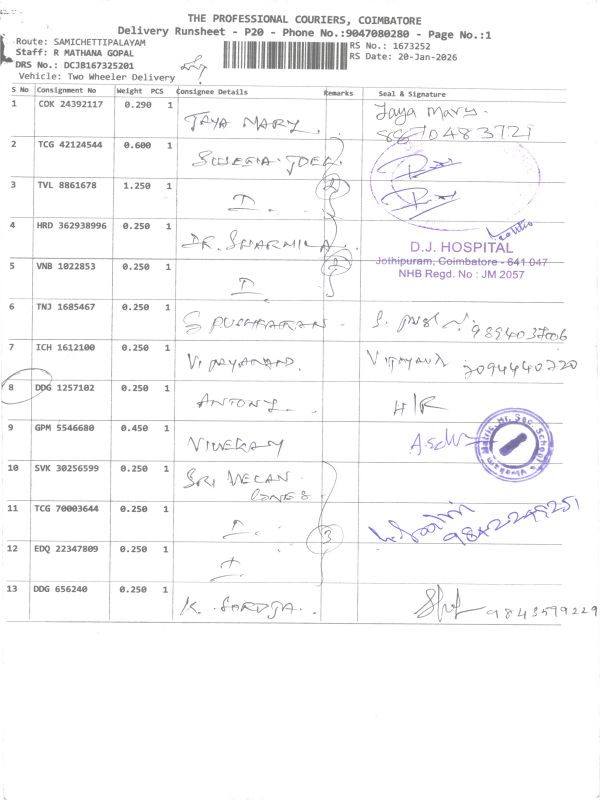 THE PROFESSIONAL COURIERS, COIMBATORE
Delivery Runsheet - P20 - Phone No.:9047080280 - Page No.:1
Route: SAMICHETTIPALAYAM
RS No.: 1673252
Staff: R MATHANA GOPAL
RS Date: 20-Jan-2026
DRS No.: DCJB167325201
Vehicle: Two Wheeler Delivery
S No Consignment No Weight PCS Consignee Details Remarks Seal & Signature
1 COK 24392117 0.290 1 JAYA MARY. Jaya Mary.
8870483721
2 TCG 42124544 0.600 1
3 TVL 8861678 1.250 1 2
4 HRD 362938996 0.250 1 DR. SHARMILA.
D.J. HOSPITAL
Jothipuram, Coimbatore - 641 047
NHB Regd. No : JM 2057
5 VNB 1022853 0.250 1 2
6 TNJ 1685467 0.250 1 S PUSHPARAN 9894037006
7 ICH 1612100 0.250 1 VIJAYANAND. 7094440720
8 DDG 1257102 0.250 1 ANTONY. H/R
9 GPM 5546680 0.450 1 VIVEKAM
Vivekam Matric. Hr. Sec. School
10 SVK 30256599 0.250 1 SRI VELAN
11 TCG 70003644 0.250 1 3 9842295251
12 EDQ 22347809 0.250 1
13 DDG 656240 0.250 1 K. SAROJA. 9843599229